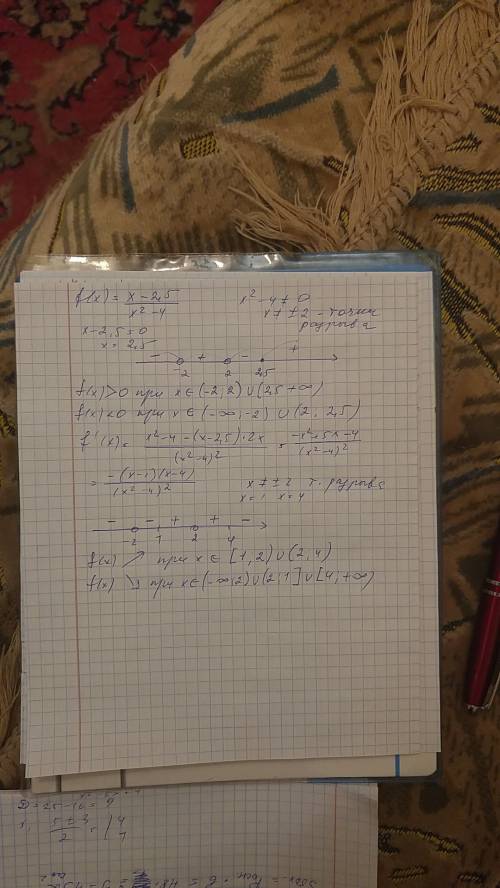 f(x) = (x − 2,5)/(x² − 4)    x² − 4 ≠ 0
x ≠ ± 2 – точки разрыва
x − 2,5 = 0
x = 2,5
− + − +
−2 2 2,5
f(x) > 0 при x ∈ (−2; 2) ∪ (2,5 +∞)
f(x) < 0 при x ∈ (−∞; −2) ∪ (2; 2,5)
f'(x) = (x² − 4 − (x − 2,5)·2x)/(x² − 4)² = (−x² + 5x − 4)/(x² − 4)²
= −(x − 1)(x − 4)/(x² − 4)²    x ≠ ± 2 т. разрыва
x = 1 x = 4
− − + + −
−2 1 2 4
f(x) ↗ при x ∈ [1, 2) ∪ (2, 4)
f(x) ↘ при x ∈ (−∞; 2) ∪ (2; 1] ∪ [4; +∞)
D = 25 − 16 = 9
(5 ± 3)/2 = 4
1